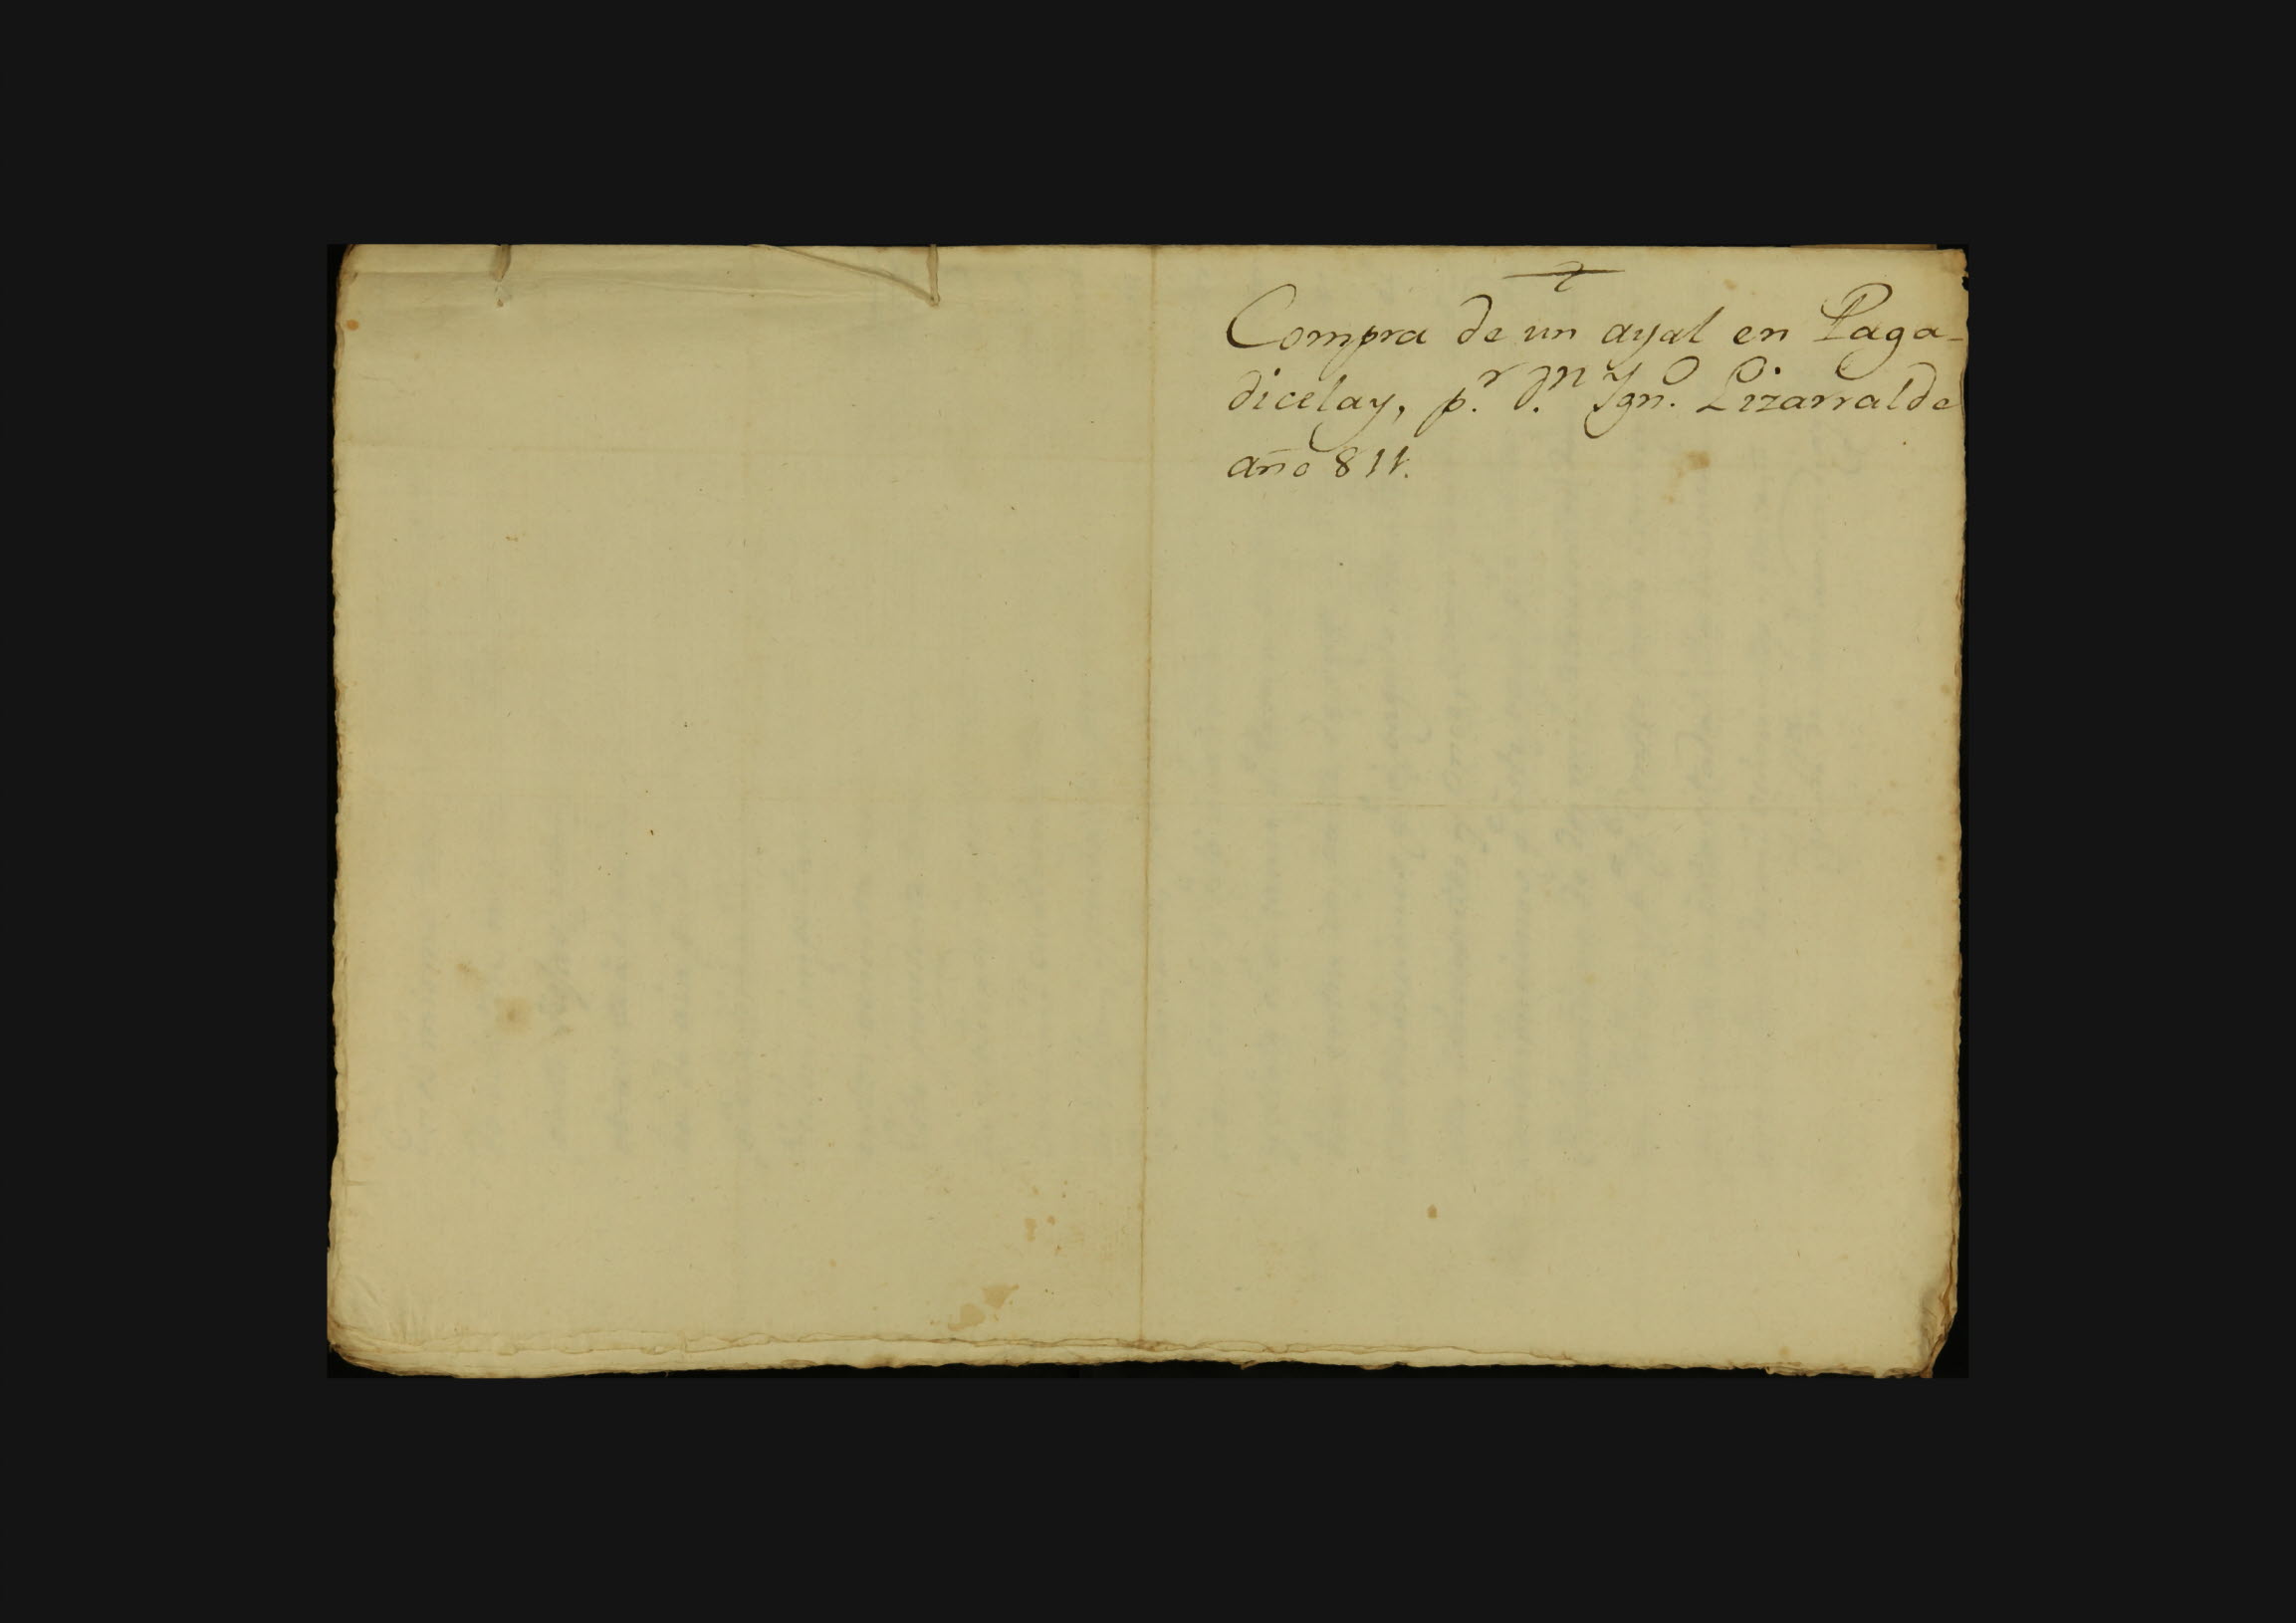 Compra de un ayal en Paga-
dicelay, p.r d.n Ygn.o Lizarralde
año 811.